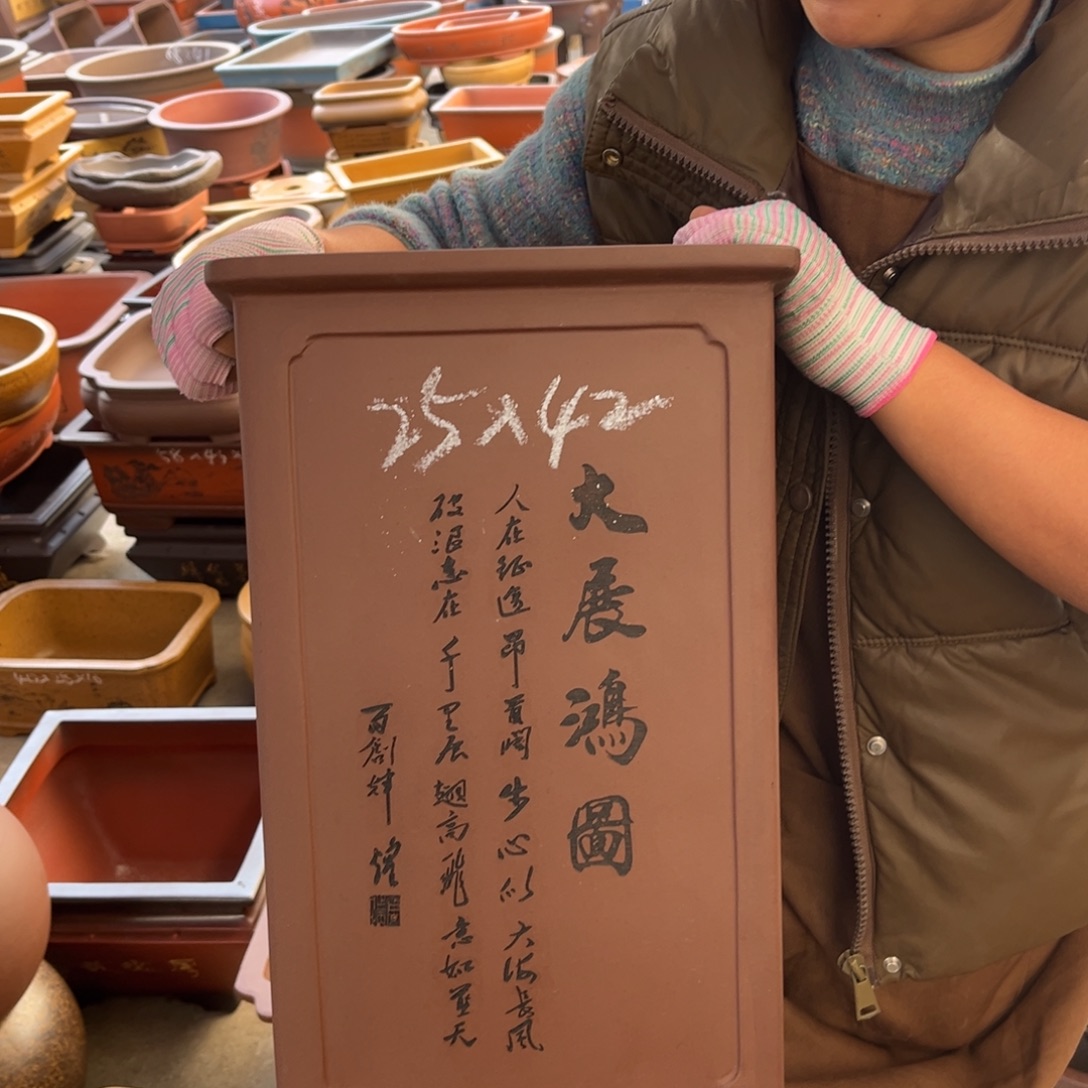 25x42
大展鴻圖
人在征途昂首阔步心似大海長風
破浪志在千里展翅高飛意如蓝天
再創辉煌